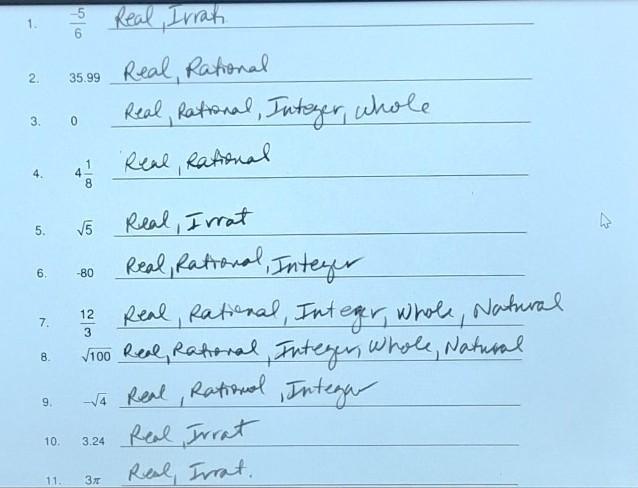 1. -5/6 Real, Irrat
2. 35.99 Real, Rational
3. 0 Real, Rational, Integer, whole
4. 4 1/8 Real, Rational
5. √5 Real, Irrat
6. -80 Real, Rational, Integer
7. 12/3 Real, Rational, Integer, whole, Natural
8. √100 Real, Rational, Integer, Whole, Natural
9. -√4 Real, Rational, Integer
10. 3.24 Real, Irrat
11. 3π Real, Irrat.